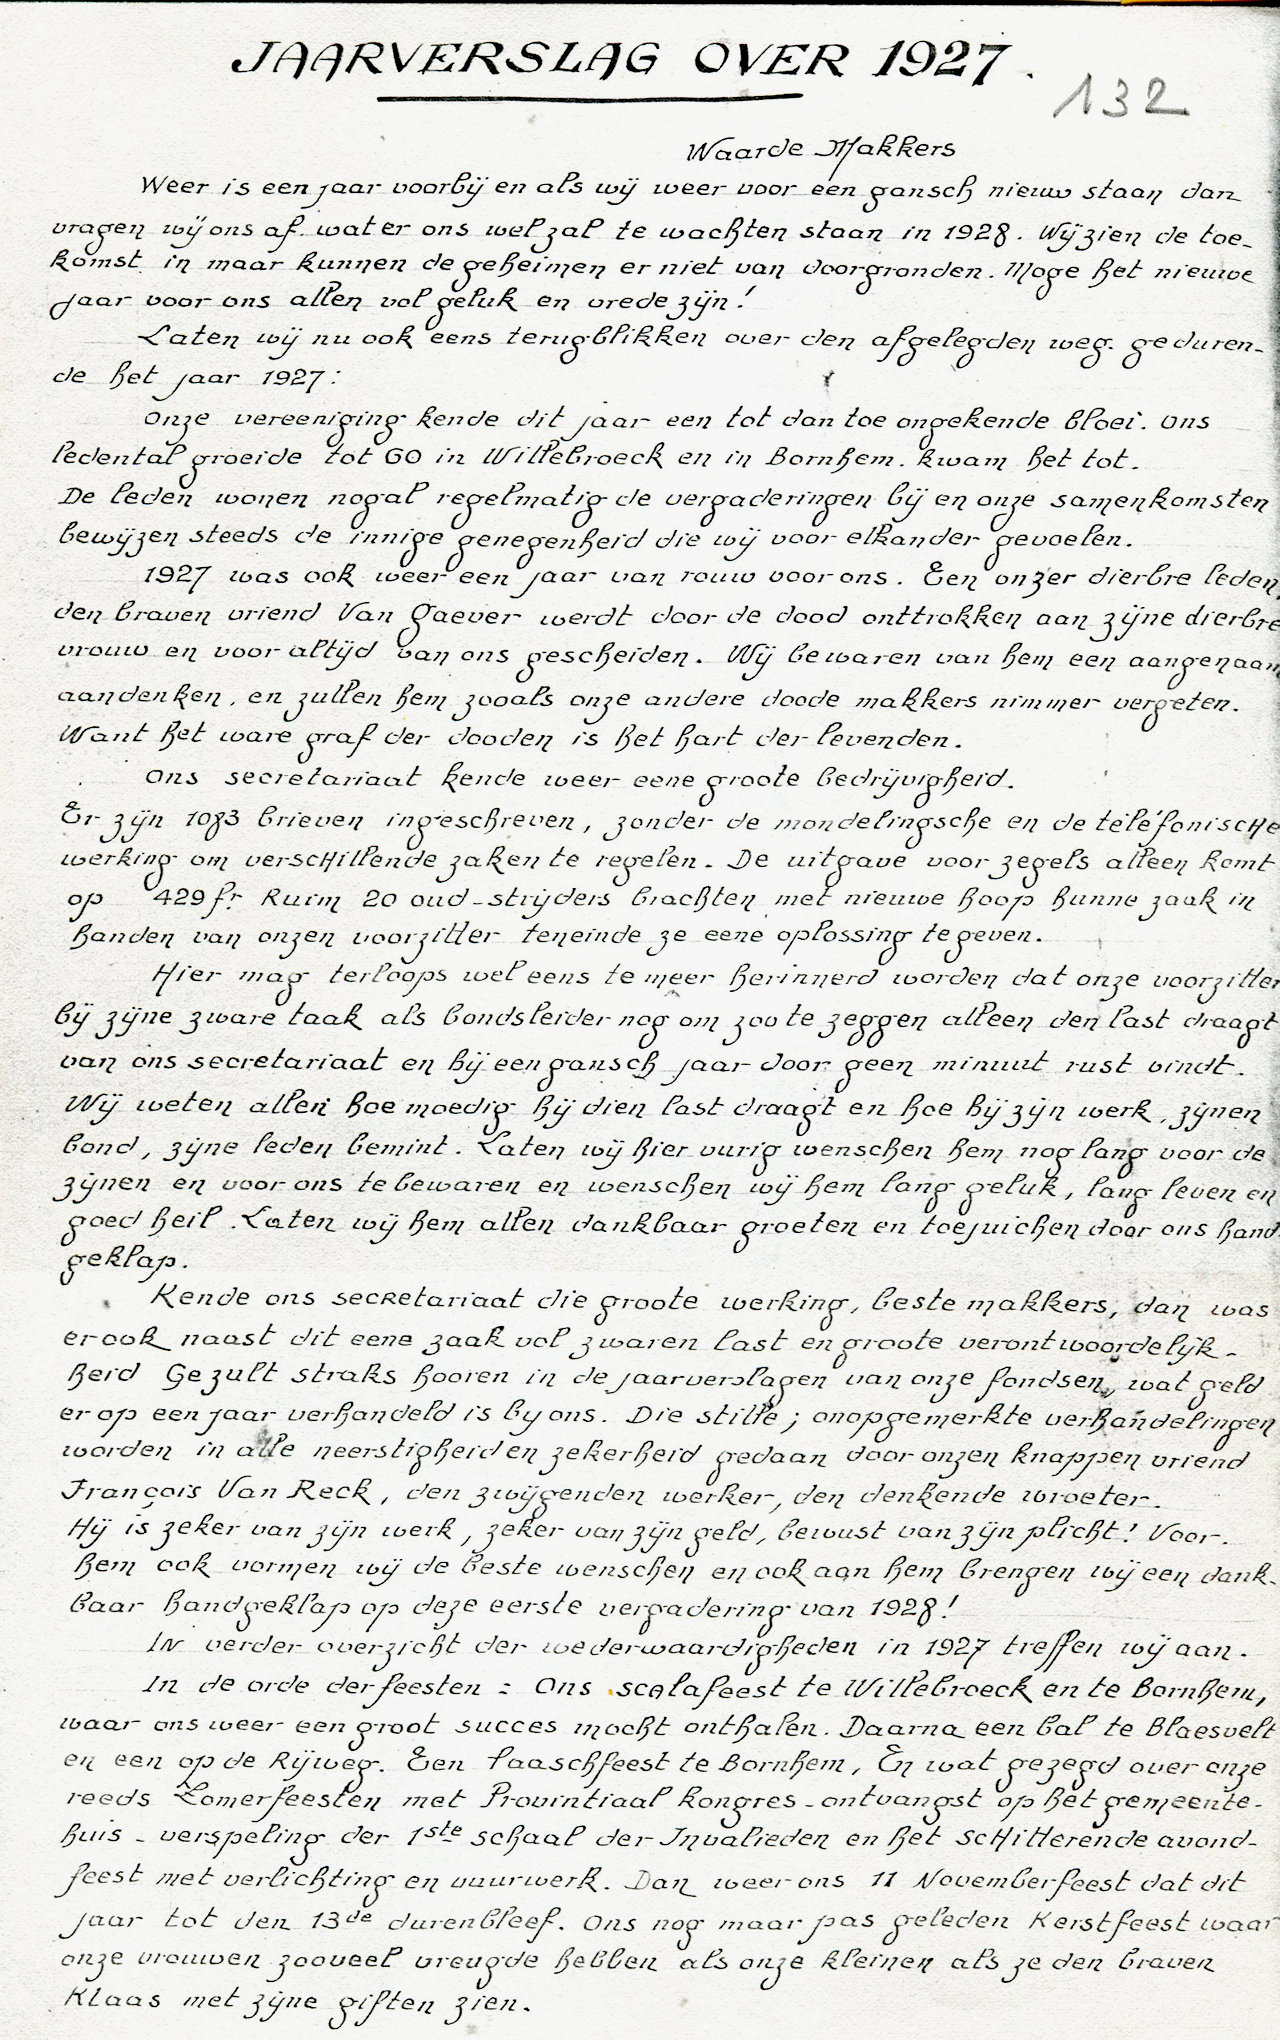 JAARVERSLAG OVER 1927.
132
Waarde Makkers
Weer is een jaar voorbij en als wij weer voor een gansch nieuw staan dan
vragen wij ons af wat er ons wel zal te wachten staan in 1928. Wij zien de toe-
komst in maar kunnen de geheimen er niet van doorgronden. Moge het nieuwe
jaar voor ons allen vol geluk en vrede zijn!
Laten wij nu ook eens terugblikken over den afgelegden weg geduren-
de het jaar 1927:
Onze vereeniging kende dit jaar een tot dan toe ongekende bloei. Ons
ledental groeide tot 60 in Willebroeck en in Bornhem kwam het tot.
De leden wonen nogal regelmatig de vergaderingen bij en onze samenkomsten
bewijzen steeds de innige genegenheid die wij voor elkander gevoelen.
1927 was ook weer een jaar van rouw voor ons. Een onzer dierbre leden,
den braven vriend Van Gaever werdt door de dood onttrokken aan zijne dierbre
vrouw en voor altijd van ons gescheiden. Wij bewaren van hem een aangenaam
aandenken, en zullen hem zooals onze andere doode makkers nimmer vergeten.
Want het ware graf der dooden is het hart der levenden.
Ons secretariaat kende weer eene groote bedrijvigheid.
Er zijn 1083 brieven ingeschreven, zonder de mondelingsche en de teléfonische
werking om verschillende zaken te regelen. De uitgave voor zegels alleen komt
op 429 fr Ruim 20 oud-strijders brachten met nieuwe hoop hunne zaak in
handen van onzen voorzitter teneinde ze eene oplossing te geven.
Hier mag terloops wel eens te meer herinnerd worden dat onze voorzitter
bij zijne zware taak als bondsleider nog om zoo te zeggen alleen den last draagt
van ons secretariaat en hij een gansch jaar door geen minuut rust vindt.
Wij weten allen hoe moedig hij dien last draagt en hoe hij zijn werk, zijnen
bond, zijne leden bemint. Laten wij hier vurig wenschen hem nog lang voor de
zijnen en voor ons te bewaren en wenschen wij hem lang geluk, lang leven en
goed heil. Laten wij hem allen dankbaar groeten en toejuichen door ons hand-
geklap.
Kende ons secretariaat die groote werking, beste makkers, dan was
er ook naast dit eene zaak vol zwaren last en groote verontwoordelijk-
heid Ge zult straks hooren in de jaarverslagen van onze fondsen, wat geld
er op een jaar verhandeld is by ons. Die stille; onopgemerkte verhandelingen
worden in alle neerstigheid en zekerheid gedaan door onzen knappen vriend
François Van Reck, den zwijgenden werker, den denkende wroeter.
Hij is zeker van zijn werk, zeker van zijn geld, bewust van zijn plicht! Voor
hem ook vormen wij de beste wenschen en ook aan hem brengen wij een dank-
baar handgeklap op deze eerste vergadering van 1928!
IN verder overzicht der wederwaardigheden in 1927 treffen wij aan.
In de orde der feesten: Ons scalafeest te Willebroeck en te Bornhem,
waar ons weer een groot succes mocht onthalen. Daarna een bal te Blaesvelt
en een op de Rijweg. Een Paaschfeest te Bornhem, En wat gezegd over onze
reeds Zomerfeesten met Provintiaal kongres - ontvangst op het gemeente-
huis - verspeling der 1ste schaal der Invalieden en het schitterende avond-
feest met verlichting en vuurwerk. Dan weer ons 11 Novemberfeest dat dit
jaar tot den 13de durenbleef. Ons nog maar pas geleden Kerstfeest waar
onze vrouwen zooveel vreugde hebben als onze kleinen als ze den braven
Klaas met zijne giften zien.